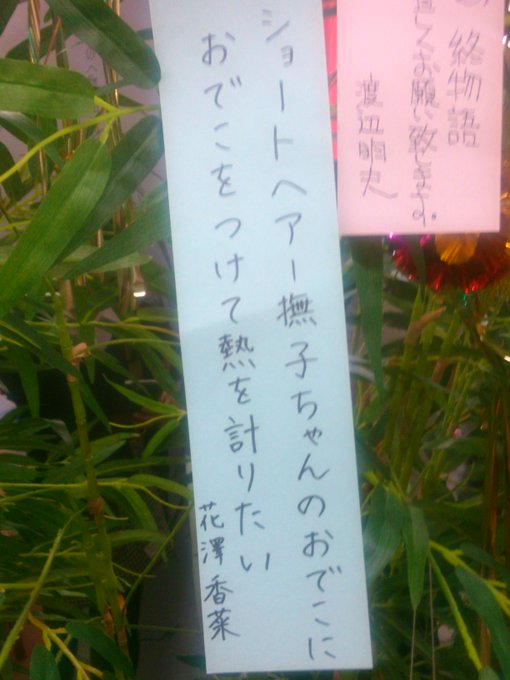 終物語
宜しくお願い致します。
渡辺明夫
ショートヘアー撫子ちゃんのおでこに
おでこをつけて熱を計りたい
花澤香菜